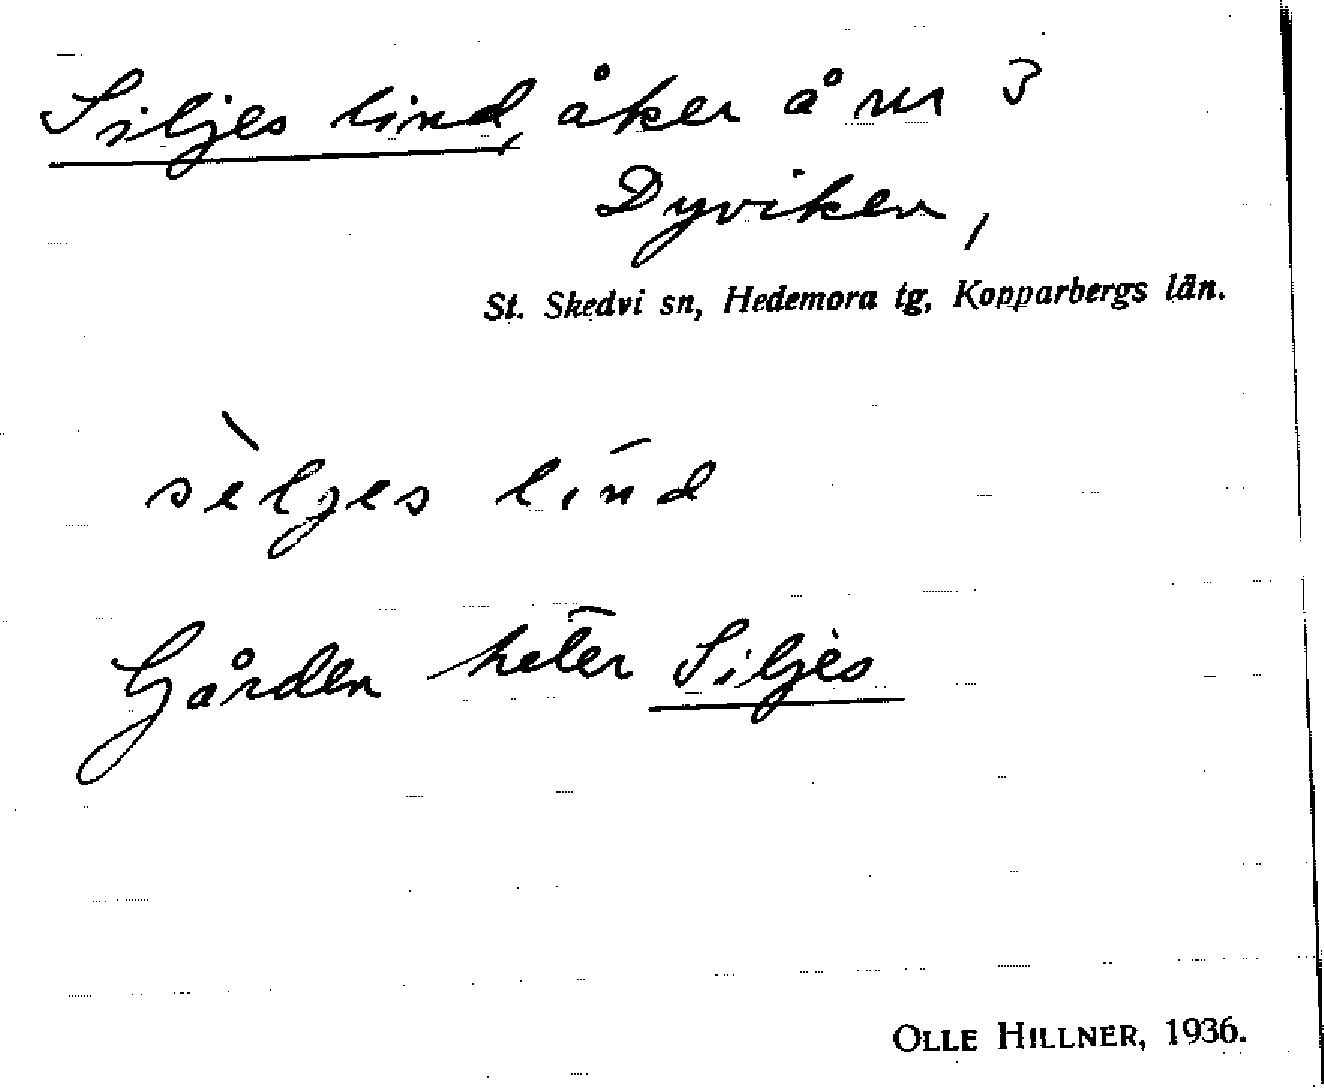 Siljes lind, åker å nr 3
Dyviken,
St. Skedvi sn, Hedemora tg, Kopparbergs län.
sèljes lind
Gården heter Siljes
OLLE HILLNER, 1936.